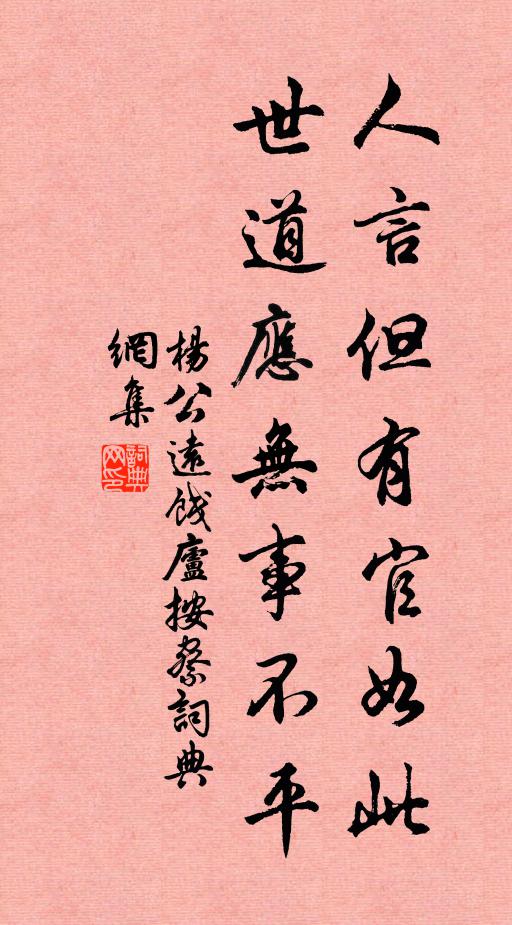 人言但有官如此
世道應無事不平
楊公遠餞盧按察詞典
網集
詞典
网印